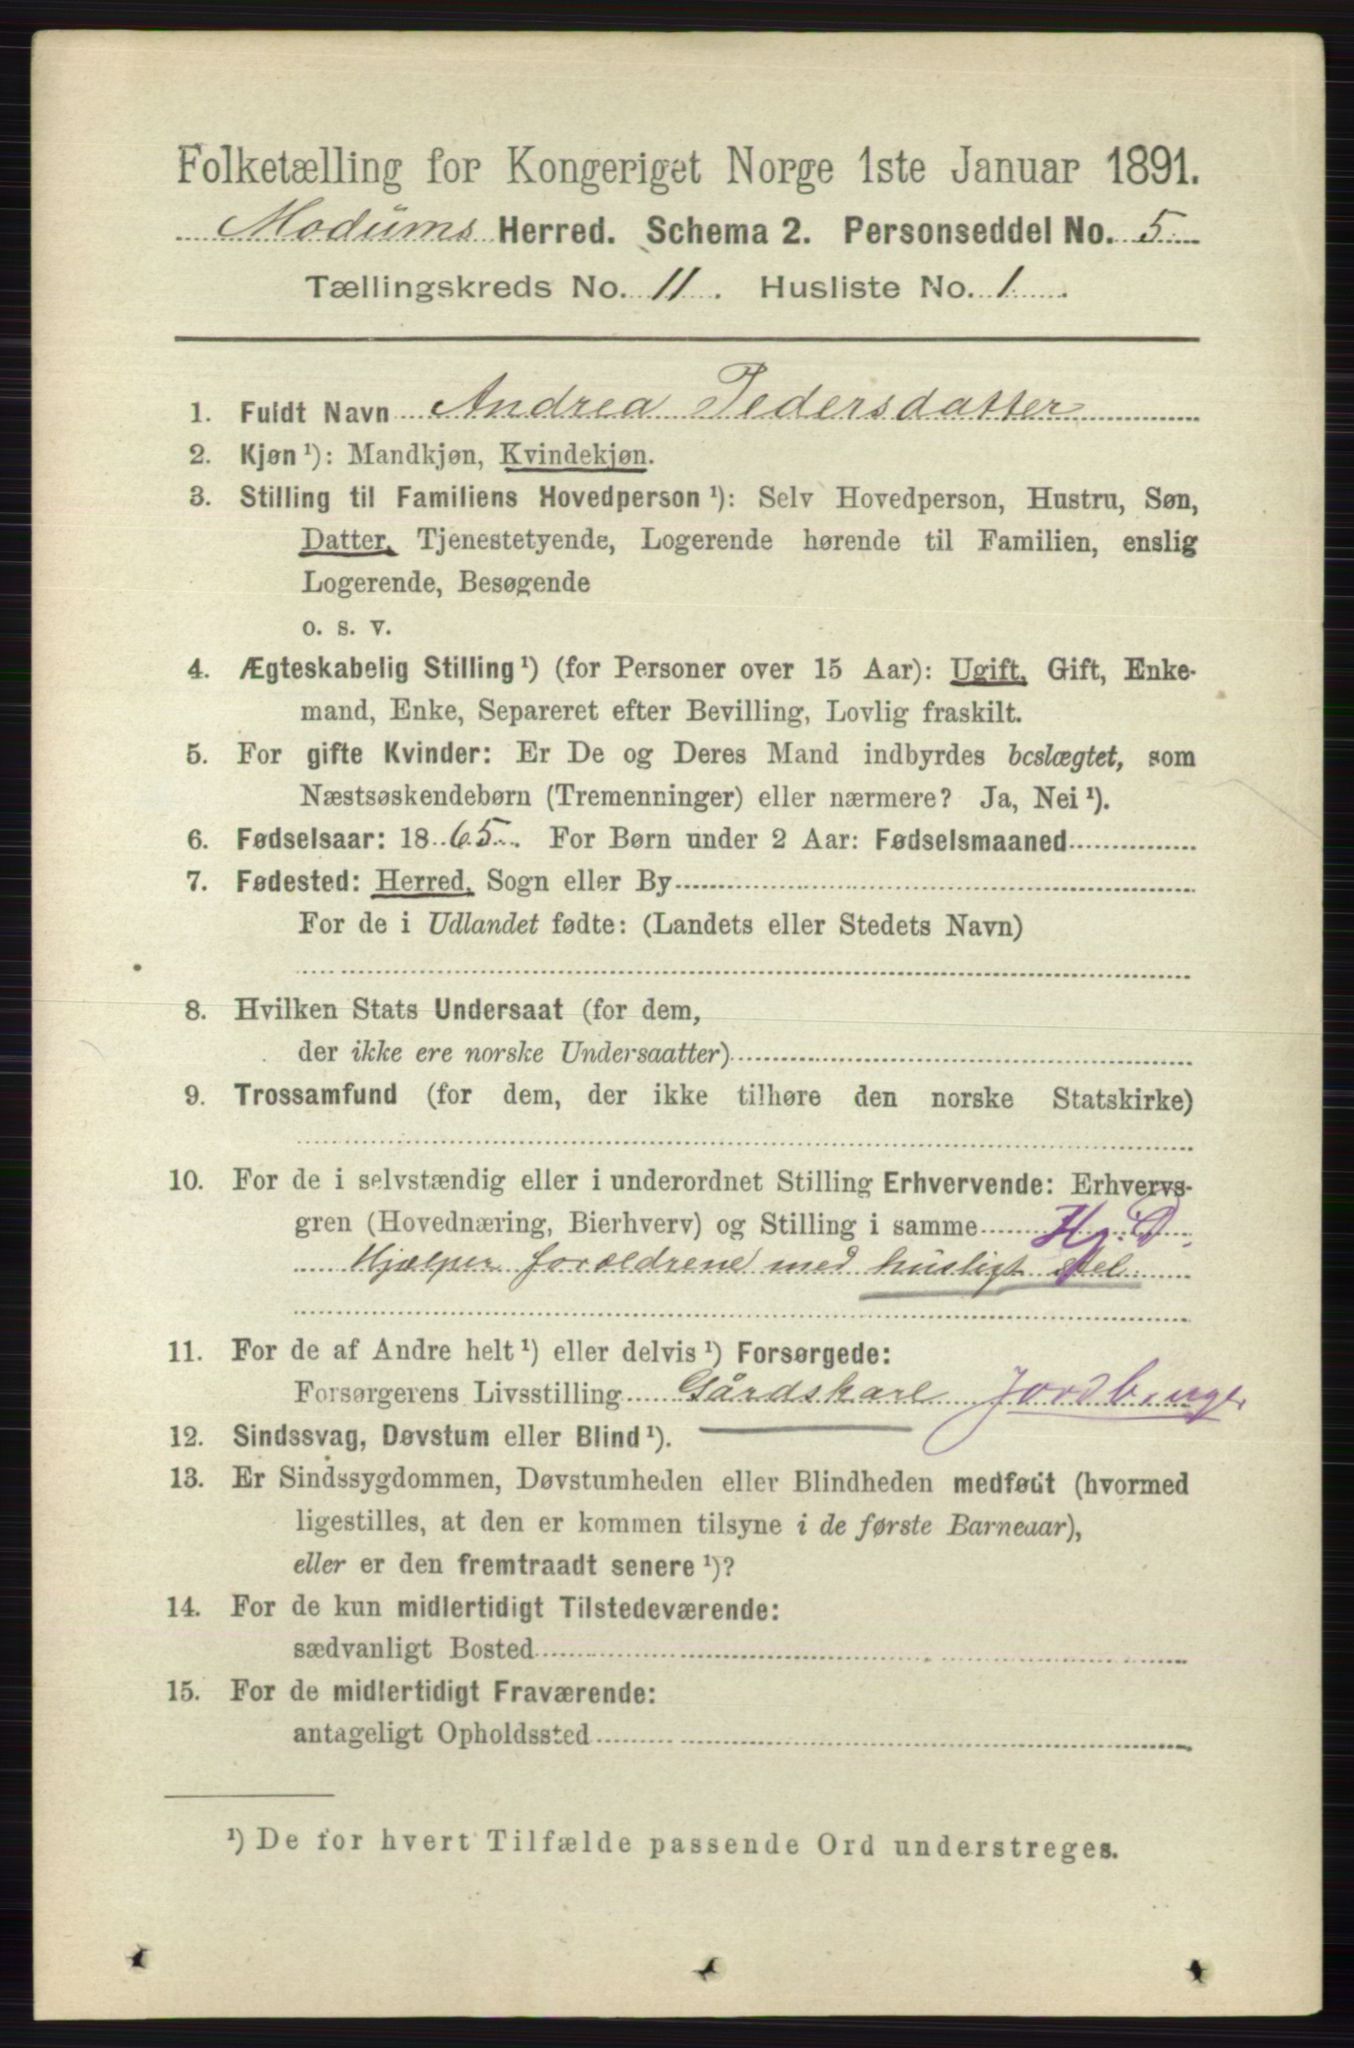 Folketælling for Kongeriget Norge 1ste Januar 1891.
Modums Herred. Schema 2. Personseddel No. 5
Tællingskreds No. 11. Husliste No. 1.
1. Fuldt Navn Andrea Pedersdatter
2. Kjøn¹): Mandkjøn, Kvindekjøn.
3. Stilling til Familiens Hovedperson¹): Selv Hovedperson, Hustru, Søn,
Datter, Tjenestetyende, Logerende hørende til Familien, enslig
Logerende, Besøgende
o. s. v.
4. Ægteskabelig Stilling¹) (for Personer over 15 Aar): Ugift, Gift, Enke-
mand, Enke, Separeret efter Bevilling, Lovlig fraskilt.
5. For gifte Kvinder: Er De og Deres Mand indbyrdes beslægtet, som
Næstsøskendebørn (Tremenninger) eller nærmere? Ja, Nei¹).
6. Fødselsaar: 1865. For Børn under 2 Aar: Fødselsmaaned
7. Fødested: Herred, Sogn eller By
For de i Udlandet fødte: (Landets eller Stedets Navn)
8. Hvilken Stats Undersaat (for dem,
der ikke ere norske Undersaatter)
9. Trossamfund (for dem, der ikke tilhøre den norske Statskirke)
10. For de i selvstændig eller i underordnet Stilling Erhvervende: Erhvervs-
gren (Hovednæring, Bierhverv) og Stilling i samme Hj. D.
Hjælper forældrene med husligt stel
11. For de af Andre helt¹) eller delvis¹) Forsørgede:
Forsørgerens Livsstilling Gårdskarl Jordbruger
12. Sindssvag, Døvstum eller Blind¹).
13. Er Sindssygdommen, Døvstumheden eller Blindheden medfødt (hvormed
ligestilles, at den er kommen tilsyne i de første Barneaar),
eller er den fremtraadt senere¹)?
14. For de kun midlertidigt Tilstedeværende:
sædvanligt Bosted
15. For de midlertidigt Fraværende:
antageligt Opholdssted
¹) De for hvert Tilfælde passende Ord understreges.